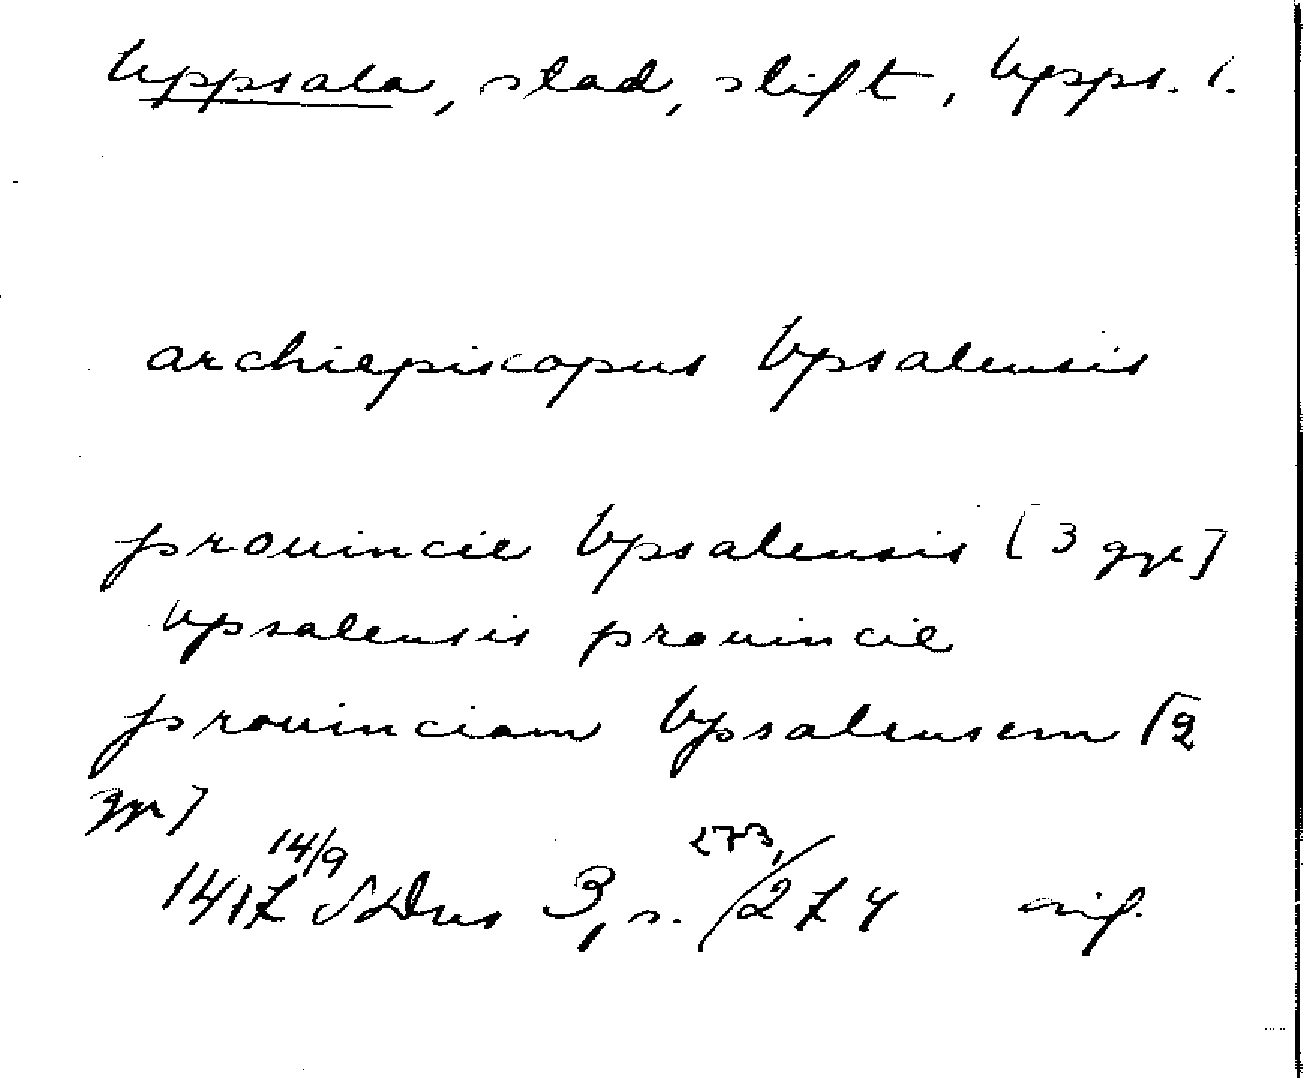 Uppsala, stad, stift, Upps. l.
archiepiscopus Vpsalensis
prouincie Vpsalensis [3 ggr]
vpsalensis prouincie
prouinciam Vpsalensem [2
ggr]
1417 14/9 SDns 3, s. 273, / 274 orig.